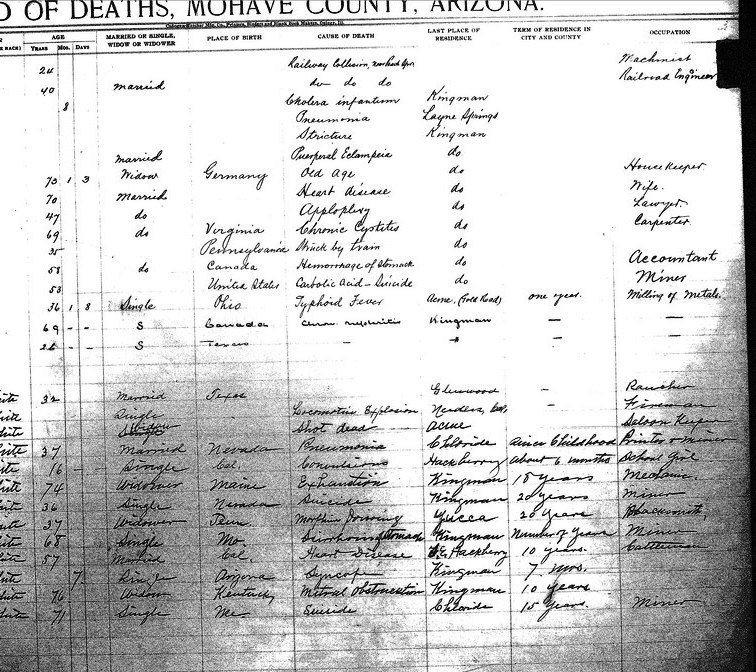 D OF DEATHS, MOHAVE COUNTY, ARIZONA.
AGE MARRIED OR SINGLE, WIDOW OR WIDOWER PLACE OF BIRTH CAUSE OF DEATH LAST PLACE OF RESIDENCE TERM OF RESIDENCE IN CITY AND COUNTY OCCUPATION
YEARS MOS. DAYS
24 Railway Collision, Machinist
40 married do do do Railroad Engineer
8 Cholera infantum Kingman
Pneumonia Layne Springs
Stricture Kingman
married Puerperal Eclampsia do
73 1 3 Widow Germany Old Age do Housekeeper
70 Married Heart disease do Wife.
47 do Apploplexy do Lawyer
69 do Virginia Chronic Cystitis do Carpenter
35 Pennsylvania Struck by train do
58 do Canada Hemorrhage of Stomach do Accountant
53 United States Carbolic Acid - Suicide do Miner
36 1 8 Single Ohio Typhoid Fever Acme. (Gold Road) one year. Milling of Metals.
69 - - S Canada Chron. nephritis Kingman - -
26 - - S Texas - " - -
ite 32 Married Texas Glenwood - Rancher
ite Single Locomotive Explosion Needles, Cal. Fireman
hite Widow Shot dead Acme Saloon Keeper
ite 37 Married Nevada Pneumonia Chloride since Childhood Printer & Miner
ite 16 - Single Cal. Convulsions Hackberry About 6 months School Girl
ite 74 Widower Maine Exhaustion Kingman 18 years Mechanic.
ite 36 Single Nevada Suicide Kingman 20 years Miner
ite 37 Widower Tenn. Morphine Poisoning Yucca 20 years Blacksmith
ite 68 Single Mo. Stomach Kingman Number of Years Miner
ite 57 Married Cal. Heart Disease Hackberry 10 years. Cattleman
ite 7 Single Arizona Syncope Kingman 7 mos.
ite 76 Widow Kentucky Mitral Obstruction Kingman 10 years
ite 71 Single Me. Suicide Chloride 15 years. Miner